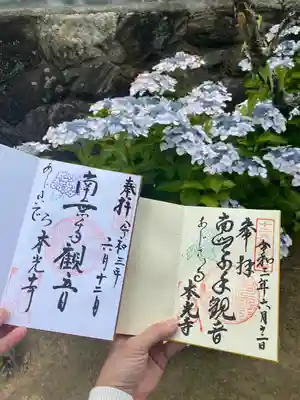 奉拝
令和三年
六月十二日
南無千手観音
あじさいでら
本光寺
令和三年六月十二日
奉拝
南無千手観音
あじさいでら
本光寺